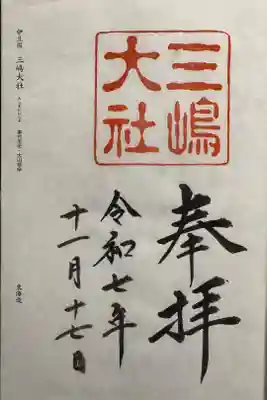 三嶋
大社
奉拝
令和七年
十一月十七日
伊豆国 三嶋大社
東海道